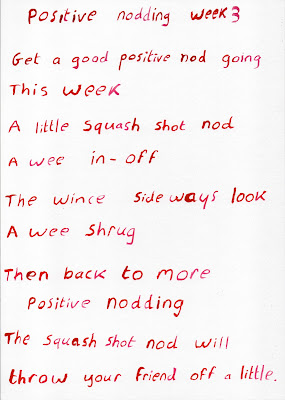 Positive nodding week 3
Get a good positive nod going
This week
A little squash shot nod
A wee in-off
The wince sideways look
A wee shrug
Then back to more
Positive nodding
The squash shot nod will
throw your friend off a little.